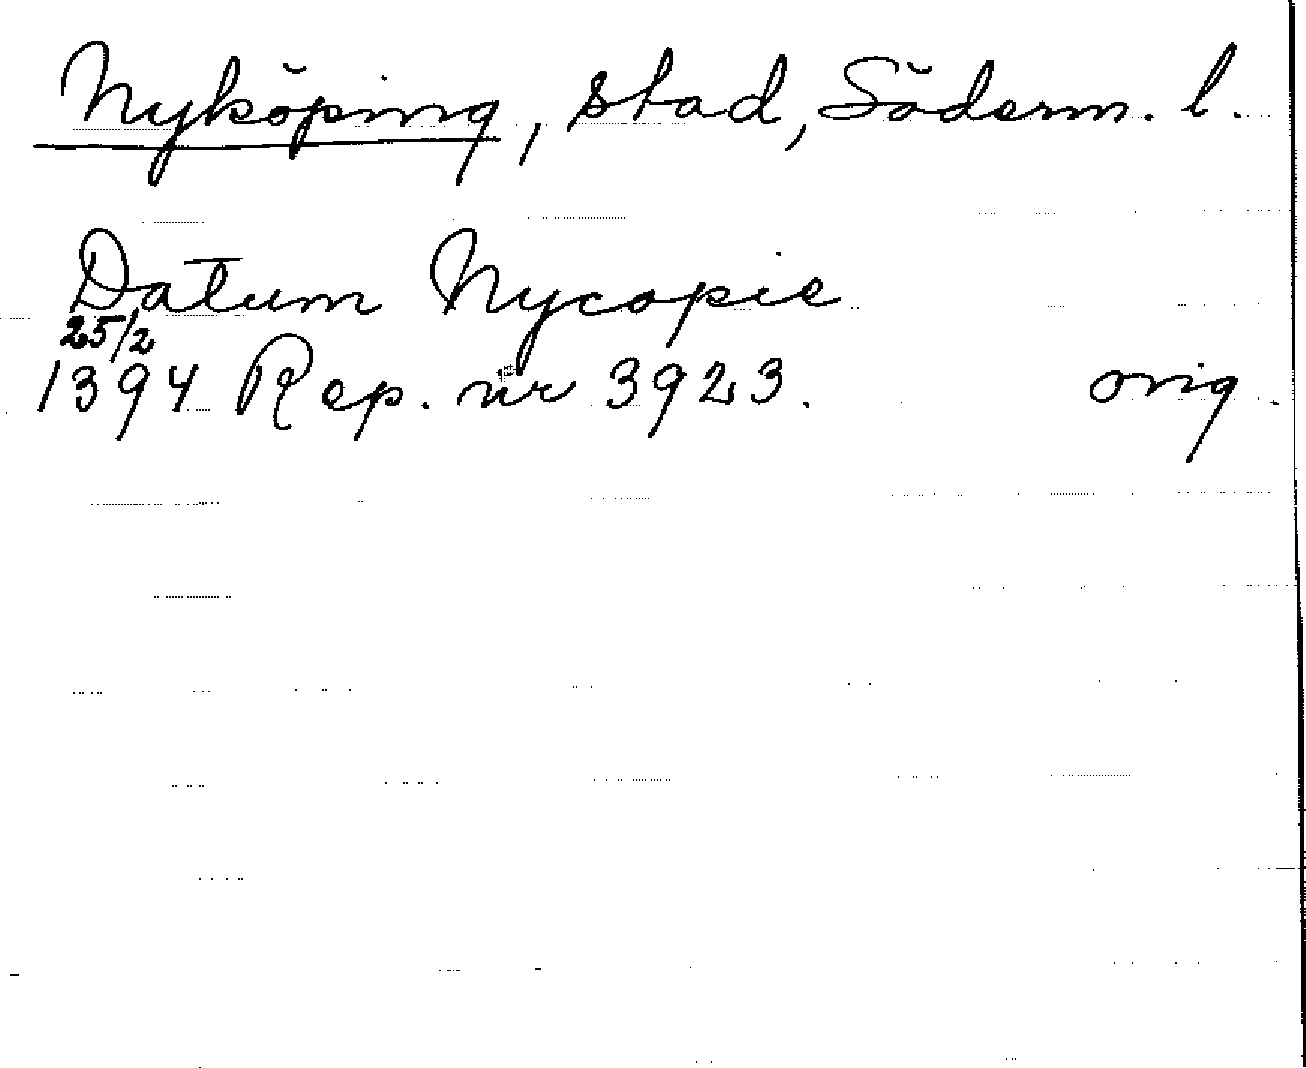 Nyköping, stad, Söderm. l.
Datum Nycopie
25/2
1394 Rep. nr 3923. orig.